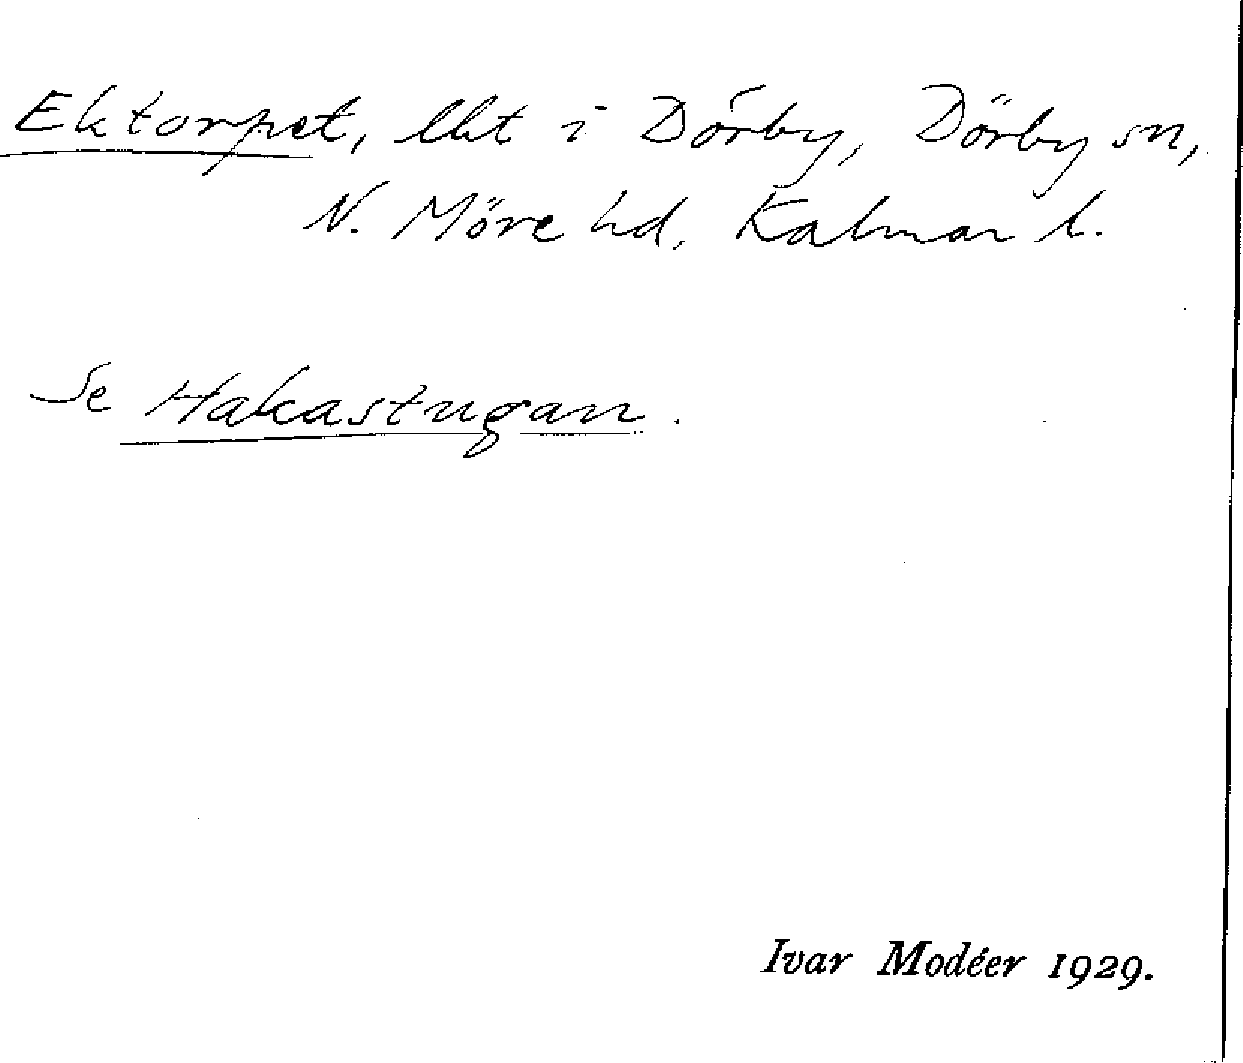 Ektorpet, lht i Dörby, Dörby sn,
N. Möre hd, Kalmar l.
Se Hakastugan.
Ivar Modéer 1929.